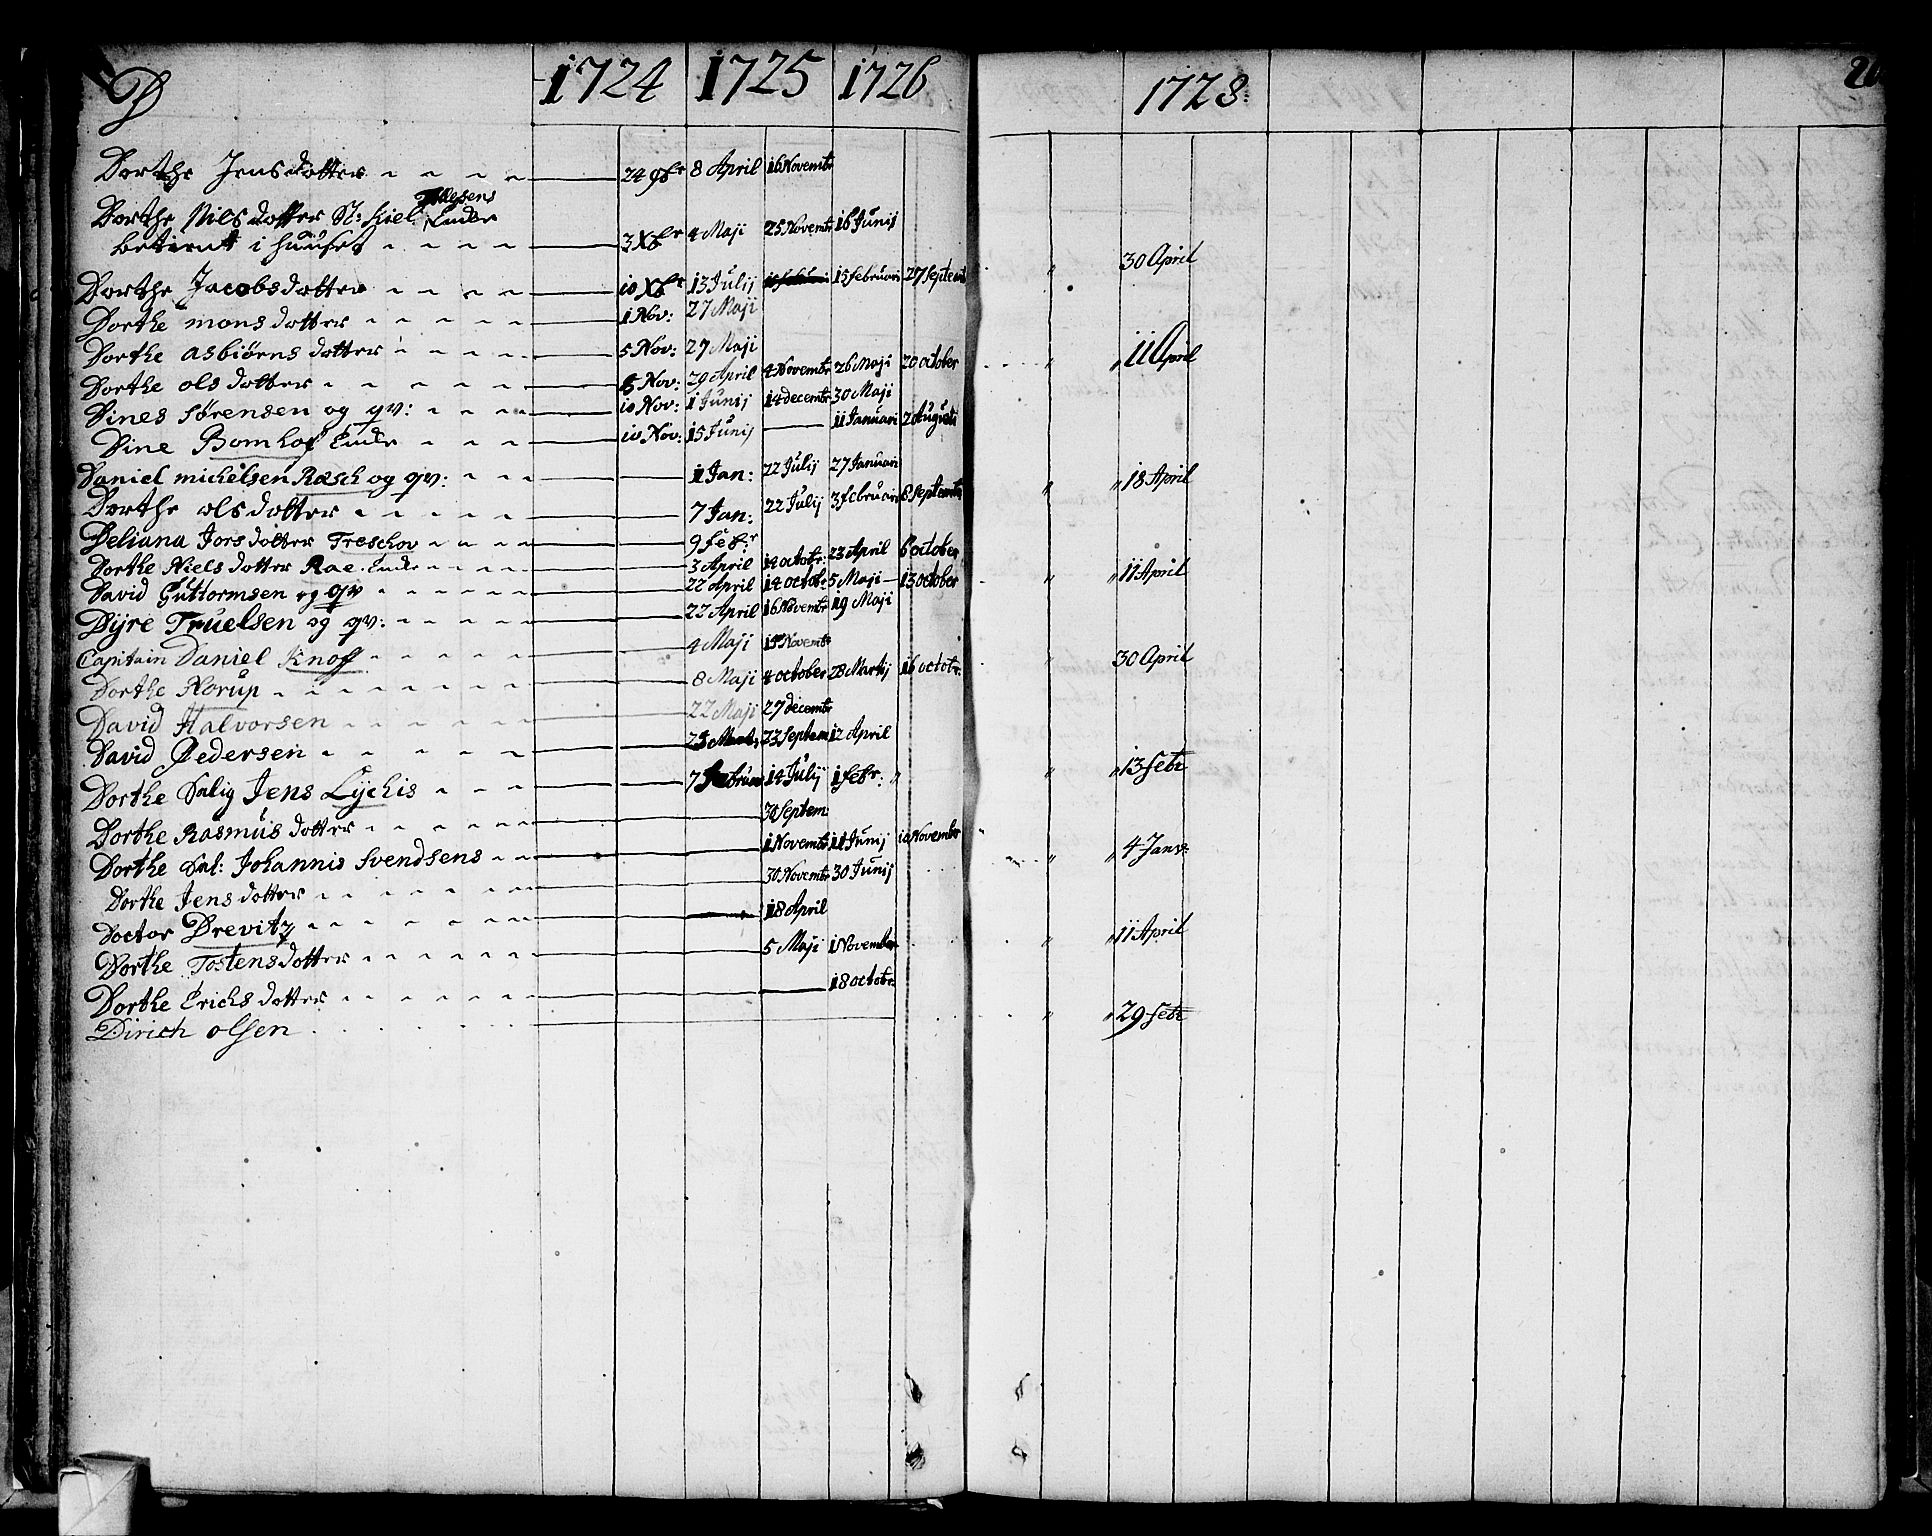 D 1724 1725 1726 1728 20
Dorthe Jensdotter 24 9br 8 April 16 Novembr
Tollesens
Dorthe Nilsdotter St: Kiel Encke
betient i huuset 3 Xbr 4 Maji 25 Novembr 16 Junij " 30 April
Dorthe Jacobsdotter 10 Xbr 13 Julij 15 februari 27 Septemb
Dorthe monsdotter 1 Nov: 27 Maji
Dorthe asbiørnsdotter 5 Nov: 27 Maji " " 11 April
Dorthe olsdotter 5 Nov: 29 April 4 Novembr 26 Maji 20 october
Dines Sørensen og qv: 10 Nov: 1 Junij 14 decembr 30 Maji
Dine Bomhof Encke 10 Nov: 15 Junij 11 Januari 2 Augusti
Daniel michelsen Rasch og qv: 1 Jan: 22 Julij 27 Januari " " 18 April
Dorthe olsdotter 7 Jan: 22 Julij 3 februari 8 Septembr
Deliana Jorsdotter Treschov 9 febr
Dorthe Nielsdotter Rae Encke 3 April 14 octobr: 23 April 6 october " " 11 April
David Guttormsen og qv 22 April 14 octob: 5 Maji 13 october
Dijre Truelsen og qv: 22 April 16 Novembr 19 Maji
Capitain Daniel Knoff 4 Maji 15 Novembr " 30 April
Dorthe Norup 8 Maji 4 october 28 Martij 16 octobr.
David Halvorsen 22 Maji 27 decembr
David Pedersen 23 Septem 12 April
Dorthe Salig Jens Lijchis 7 februa 14 Julij 1 febr: " " " 13 febr
Dorthe Rasmusdotter 30 Septem
Dorthe Sal: Johannis Svendsens 1 Novembr 11 Junij 10 Novembr " " 4 Janv:
Dorthe Jensdotter 30 Novembr 30 Junij
Doctor Drevitz 18 April " " 11 April
Dorthe Tostensdotter 5 Maji 1 November
Dorthe Erichsdotter 18 octobr
Dirich olsen " " 29 febr